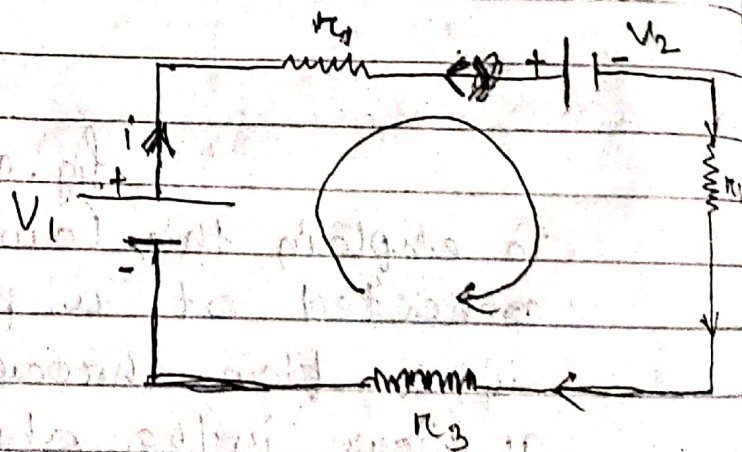 r₁
+ - V₂
i
+
V₁
-
r₃